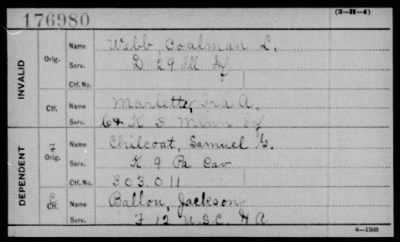 176980
(3-H-4)
INVALID
Orig.
Name Webb, Coalman L.
Serv. D 29 Ill Inf
Ctf. No.
Ctf.
Name Marlette, Ira A.
Serv. 64 K 3 Minn Inf
DEPENDENT
Orig.
Name Chilcoat, Samuel G.
Serv. K 9 Pa Cav
Ctf. No. 303.011
Ctf.
Name Ballou, Jackson
Serv. F 12 U.S.C. H A